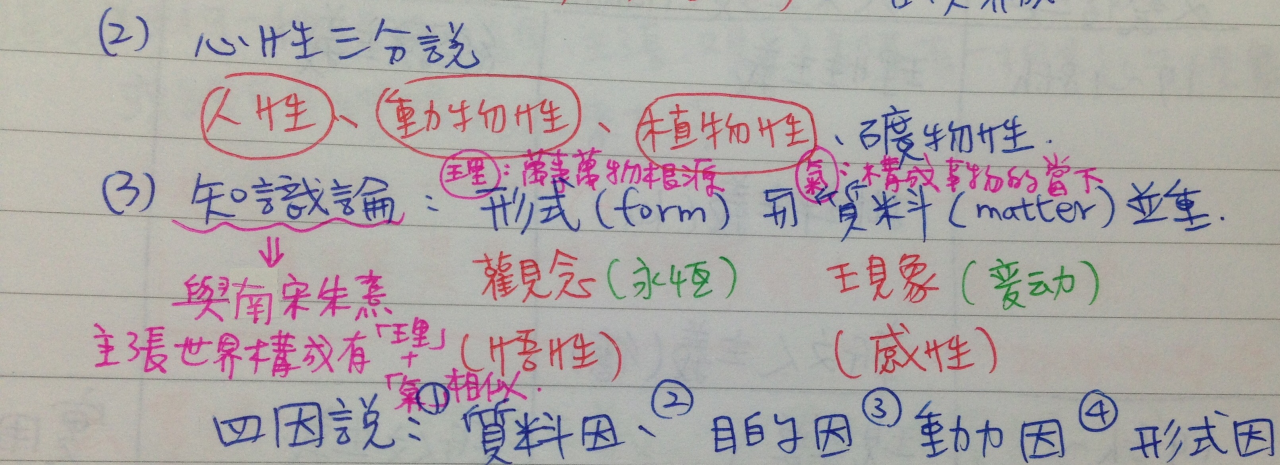 (2) 心性三分説
人性、動物性、植物性、礦物性.
理：萬事萬物根源 氣：構成事物的當下
(3) 知識論：形式(form)與質料(matter)並重.
觀念(永恆) 現象(变动)
與南宋朱熹
主張世界構成有「理」(悟性) (感性)
+
「氣」相似.
四因説：①質料因、②目的因③動力因④形式因